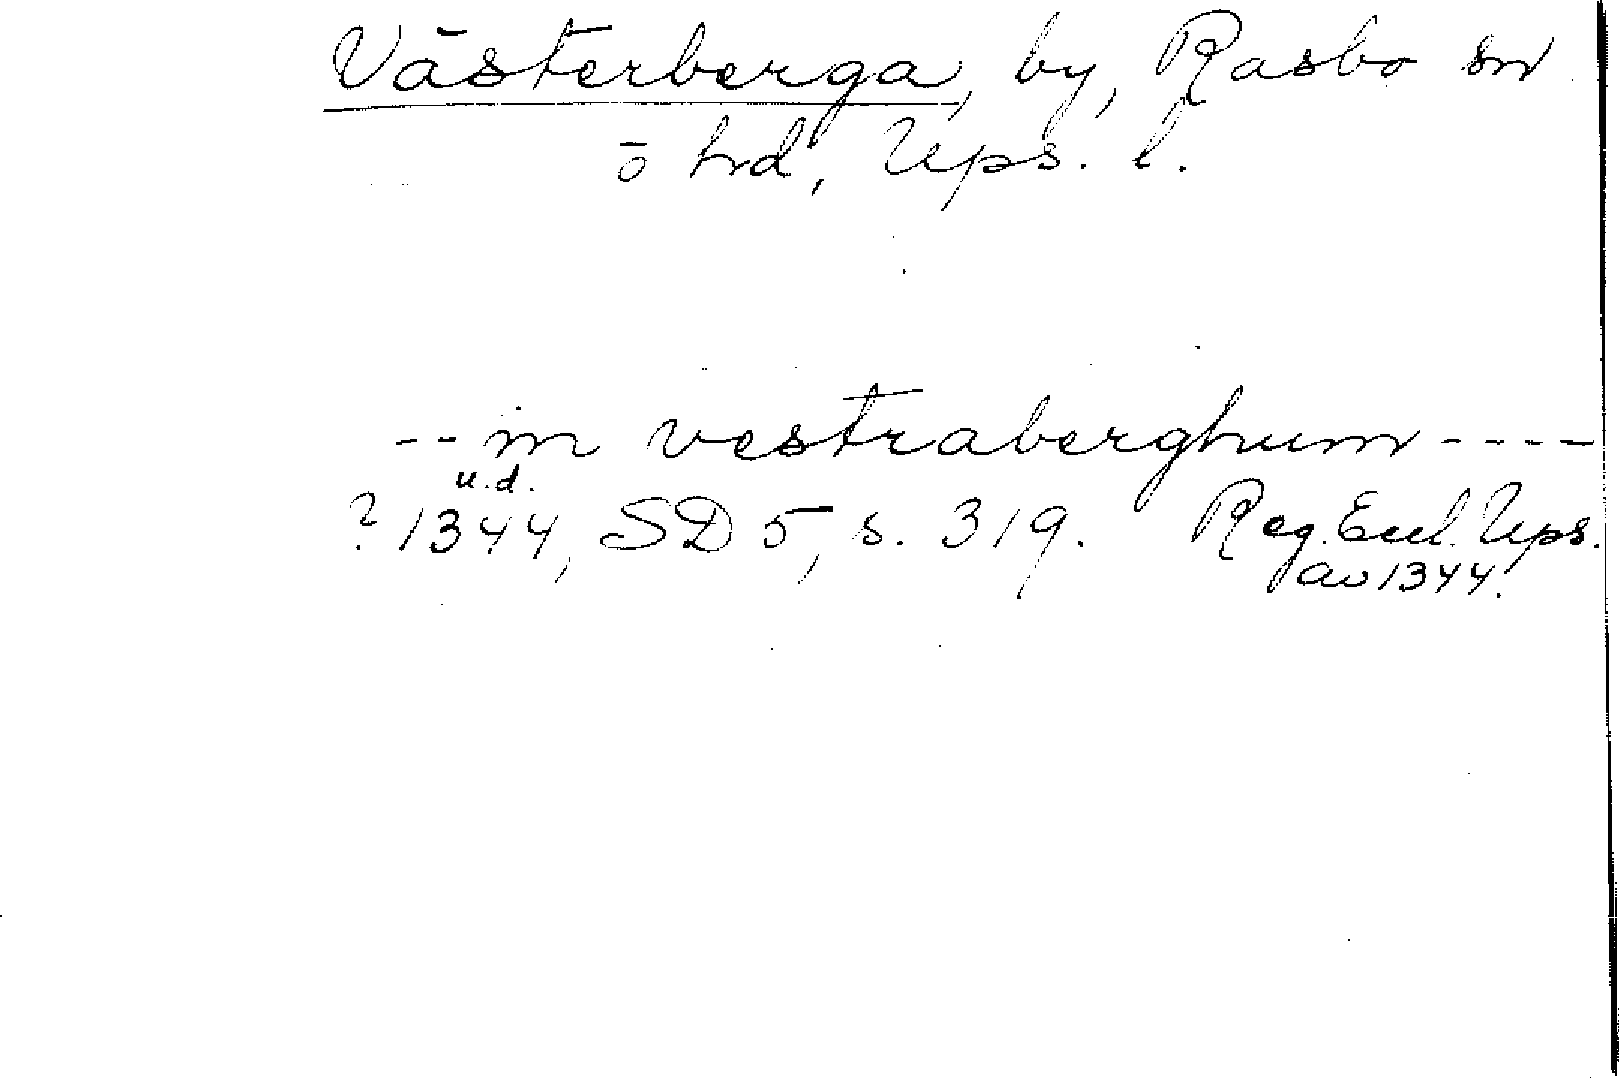 Västerberga, by, Rasbo sn
o hd, Ups. l.
-- in vestraberghum ----
u.d.
? 1344, SD 5, s. 319. Reg. Eccl. Ups.
av 1344.